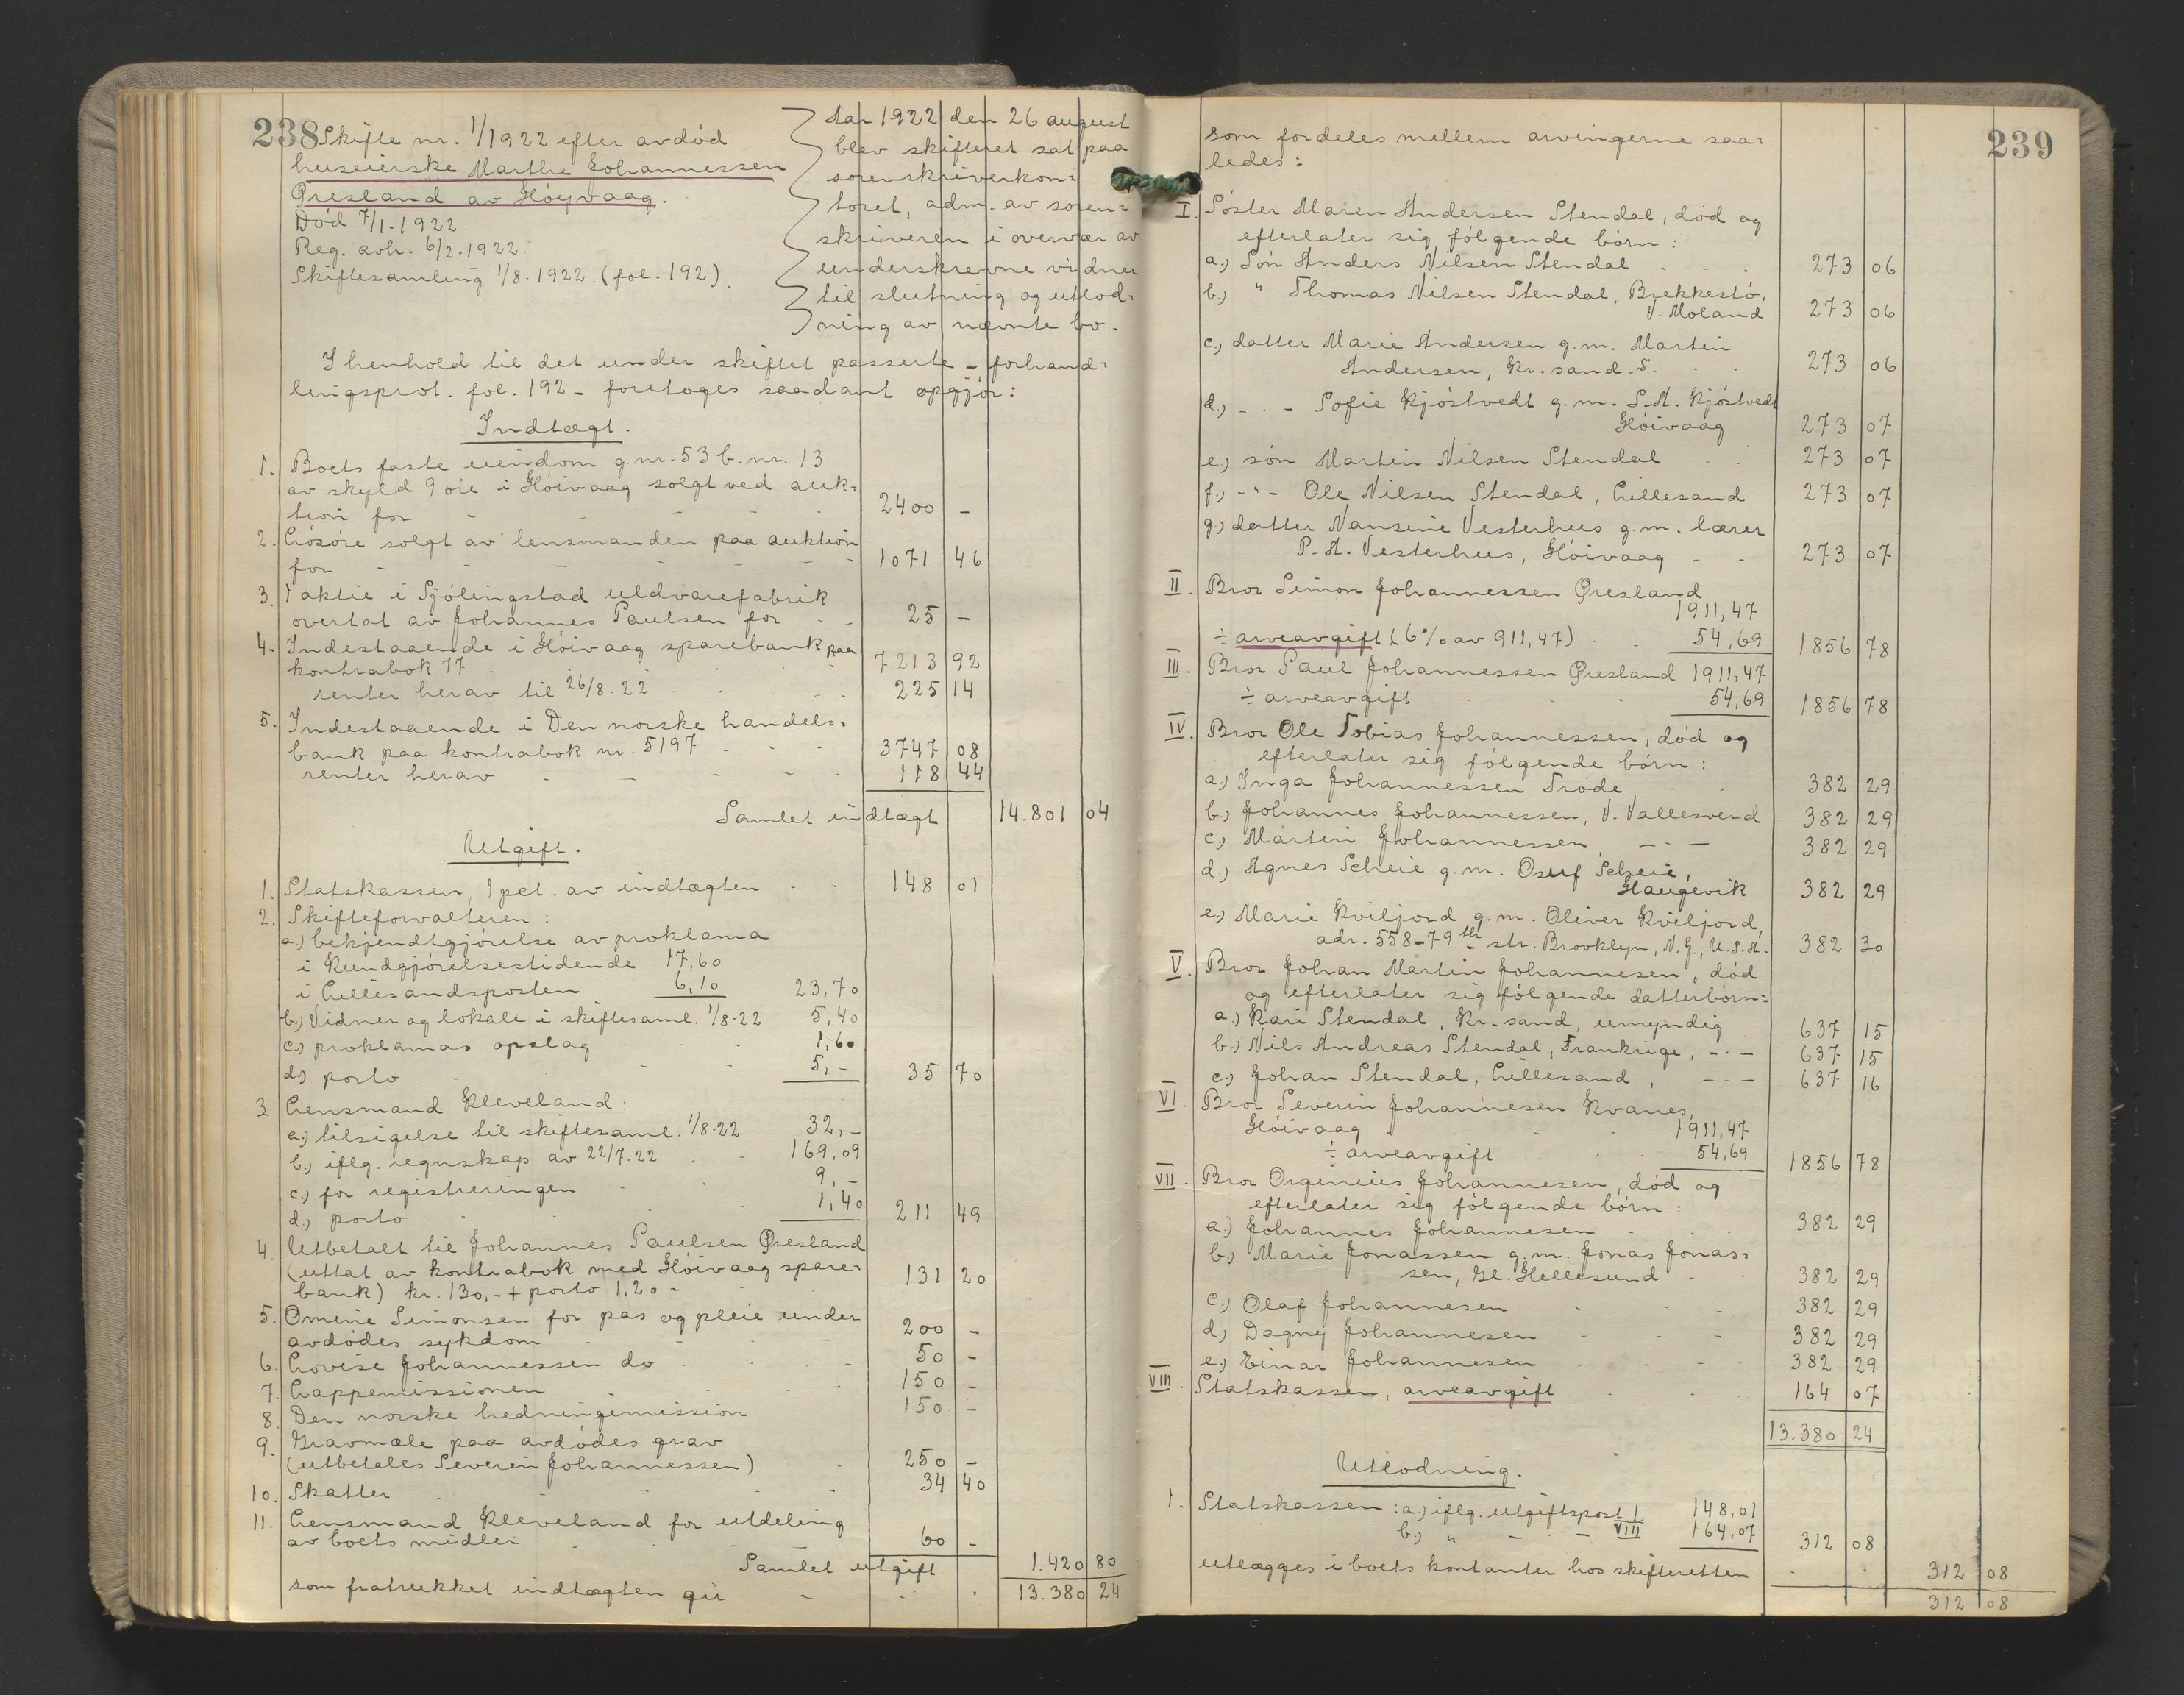 238 Skifte nr. 1/1922 efter avdöd
huseierske Marthe Johannessen
Øresland av Höyvaag.
Död 7/1-1922.
Reg. avh. 6/2-1922.
Skiftesamling 1/8-1922. (fol. 192).
Aar 1922 den 26 august
blev skifteret sat paa
sorenskriverkon=
toret, adm. av soren=
skriveren i overvær av
underskrevne vidner
til slutning og utlod=
ning av nævnte bo.
I henhold til det under skiftet passerte - forhand=
lingsprot. fol. 192 - foretoges saadant opgjör:
Indtægt.
1. Boets faste eiendom g.nr. 53 b.nr. 13
av skyld 9 øre i Höivaag solgt ved auk=
tion for - - - - - 2400 -
2. Lösöre solgt av lensmanden paa auktion
for - - - - - 1071 46
3. 1 aktie i Sjölingstad uldvarefabrik
overtat av Johannes Paulsen for - - 25 -
4. Indestaaende i Höivaag sparebank paa
kontrabok 77 - - - - 7213 92
renter herav til 26/8-22 - - - 225 14
5. Indestaaende i Den norske handels=
bank paa kontrabok nr. 5197 - - - 3747 08
renter herav - - - - - 118 44
Samlet indtægt 14.801 04
Utgift.
1. Statskassen, 1 pct. av indtægten - - 148 01
2. Skifteforvalteren:
a.) bekjendtgjörelse av proklama
i Kundgjörelsestidende 17,60
i Lillesandsposten 6,10 23,70
b.) Vidner og lokale i skiftesaml. 1/8-22 5,40
c.) proklamas opslag - - - 1,60
d.) porto - - - 5,- 35 70
3 Lensmand Kleveland:
a.) tilsigelse til skiftesaml. 1/8-22 32,-
b.) iflg. regnskap av 22/7-22 - - 169,09
c.) for registreringen - - 9,-
d.) porto - - - 1,40 211 49
4. Utbetalt til Johannes Paulsen Øresland
(uttat av kontrabok med Höivaag spare-
bank) kr. 130,- + porto 1,20 - 131 20
5. Omine Simonsen for pas og pleie under
avdödes sykdom - - - - 200 -
6. Lovise Johannessen do - - - 50 -
7. Lappemissionen - - - - 150 -
8. Den norske hedningemission 150 -
9. Gravmæle paa avdödes grav
(utbetales Severin Johannessen) - 250 -
10. Skatter - - - - - 34 40
11. Lensmand Kleveland for utdeling
av boets midler - - - - 60 -
Samlet utgift 1.420 80
som fratrukket indtægten gir - - - 13.380 24
239
som fordeles mellem arvingerne saa=
ledes:
I. Söster Maren Andersen Stendal, död og
efterlater sig fölgende börn:
a.) Sön Anders Nilsen Stendal - - - 273 06
b.) " Thomas Nilsen Stendal, Brekkestö,
V. Moland 273 06
c.) datter Marie Andersen g.m. Martin
Andersen, Kr.sand. S. - - 273 06
d.) - " - Sofie Kjöstvedt g.m. S.A. Kjöstvedt
Höivaag 273 07
e.) sön Martin Nilsen Stendal - - 273 07
f.) - " - Ole Nilsen Stendal, Lillesand 273 07
g.) datter Nansine Vesterhus g.m. lærer
P. A. Vesterhus, Höivaag - - 273 07
II. Bror Simon Johannessen Øresland
1911,47
÷ arveavgift (6% av 911,47) - - 54,69 1856 78
III. Bror Paul Johannessen Øresland 1911,47
÷ arveavgift - - - 54,69 1856 78
IV. Bror Ole Tobias Johannessen, död og
efterlater sig fölgende börn:
a.) Inga Johannessen Tröde - - 382 29
b.) Johannes Johannessen, V. Vallesverd 382 29
c.) Martin Johannessen, - " - 382 29
d.) Agnes Scheie g.m. Osuf Scheie,
Haugevik 382 29
e.) Marie Kviljord g.m. Oliver Kviljord,
adr. 558-79th str. Brooklyn, N.Y., U.S.A. 382 30
V. Bror Johan Martin Johannesen, död
og efterlater sig fölgende datterbörn:
a.) Kari Stendal, Kr.sand, umyndig 637 15
b.) Nils Andreas Stendal, Frankrige, - " - 637 15
c.) Johan Stendal, Lillesand, - " - 637 16
VI. Bror Severin Johannesen Kvanes,
Höivaag - - - 1911,47
÷ arveavgift - - - 54,69 1856 78
VII. Bror Orginius Johannesen, död og
efterlater sig fölgende börn:
a.) Johannes Johannesen - - - 382 29
b.) Marie Jonassen g.m. Jonas Jonas=
sen, Gl. Hellesund - - 382 29
c.) Olaf Johannesen - - - 382 29
d.) Dagny Johannesen - - - 382 29
e.) Einar Johannesen - - - 382 29
VIII. Statskassen, arveavgift - - 164 07
13.380 24
Utlodning.
1. Statskassen: a.) iflg. utgiftspost 1 148,01
b.) " - " - VIII 164,07 312 08
utlægges i boets kontanter hos skifteretten - - 312 08
312 08